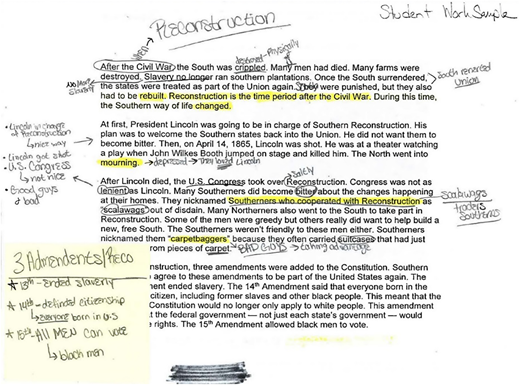 Student Work Sample
Reconstruction
when
destroyed Physically
After the Civil War the South was crippled. Many men had died. Many farms were
destroyed. Slavery no longer ran southern plantations. Once the South surrendered,
the states were treated as part of the Union again. They were punished, but they also
had to be rebuilt. Reconstruction is the time period after the Civil War. During this time,
the Southern way of life changed.
No More Slavery
South renered
Union
At first, President Lincoln was going to be in charge of Southern Reconstruction. His
plan was to welcome the Southern states back into the Union. He did not want them to
become bitter. Then, on April 14, 1865, Lincoln was shot. He was at a theater watching
a play when John Wilkes Booth jumped on stage and killed him. The North went into
mourning. depressed they loved Lincoln
Lincoln in charge
Reconstruction
nice way
Lincoln got shot
U.S. Congress
not nice
Good guys
bad
After Lincoln died, the U.S. Congress took over Reconstruction. Congress was not as
lenient as Lincoln. Many Southerners did become bitter about the changes happening
at their homes. They nicknamed Southerners who cooperated with Reconstruction as
"scalawags" out of disdain. Many Northerners also went to the South to take part in
Reconstruction. Some of the men were greedy but others really did want to help build a
new, free South. The Southerners weren't friendly to these men either. Southerners
nicknamed them "carpetbaggers" because they often carried suitcases that had just
from pieces of carpet. BAD GUYS taking advantage
Scalawags
Southerns
3 Admendents/Reco
13th - ended slavery
14th - definted citizenship
everyone born in U.S
15th - All MEN can vote
black men
nstruction, three amendments were added to the Constitution. Southern
agree to these amendments to be part of the United States again. The
ment ended slavery. The 14th Amendment said that everyone born in the
citizen, including former slaves and other black people. This meant that the
Constitution would no longer only apply to white people. This amendment
at the federal government — not just each state's government — would
e rights. The 15th Amendment allowed black men to vote.